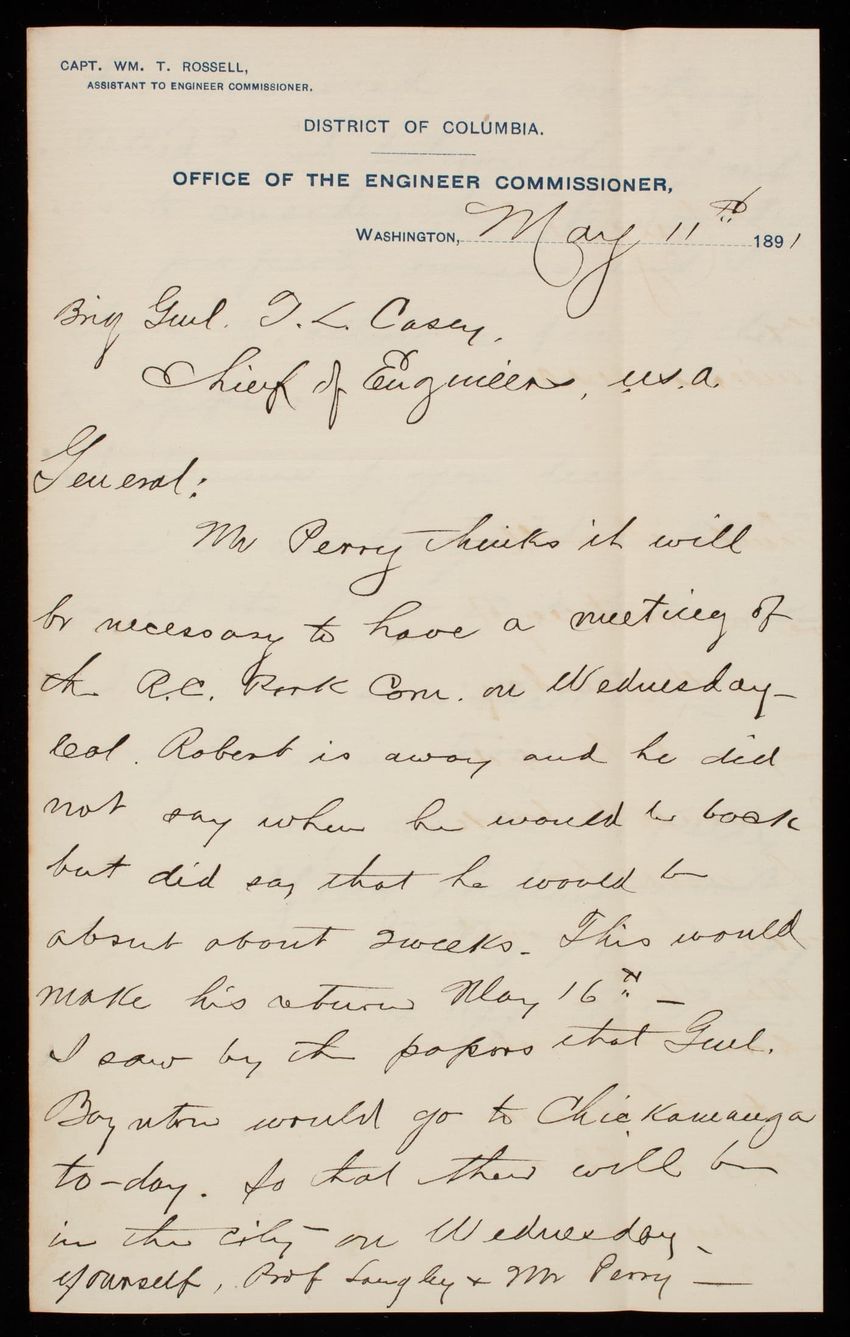 CAPT. WM. T. ROSSELL,
ASSISTANT TO ENGINEER COMMISSIONER.
DISTRICT OF COLUMBIA.
OFFICE OF THE ENGINEER COMMISSIONER,
WASHINGTON, May 11th 1891
Brig Genl. T. L. Casey,
Chief of Engineers, U.S.A.
General:
Mr Perry thinks it will
be necessary to have a meeting of
the R.C. Park Com. on Wednesday—
Col. Robert is away and he did
not say when he would be back
but did say that he would be
absent about 2 weeks. This would
make his return May 16th —
I saw by the papers that Genl.
Boynton would go to Chickamauga
to-day. So that there will be
in the city on Wednesday
yourself, Prof Langley & Mr Perry —